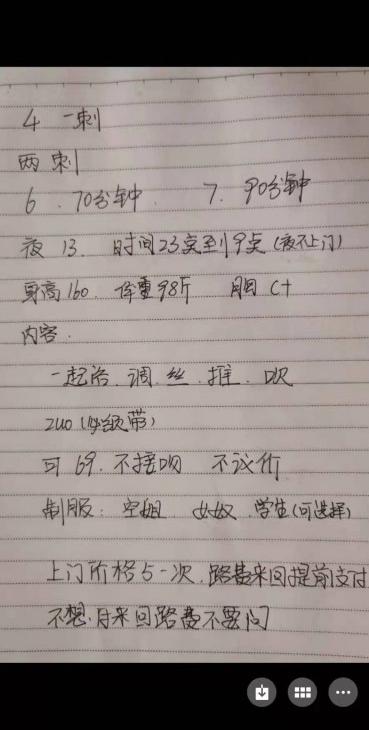 4 一刺
两刺
6 . 70分钟 . 7. 90分钟
夜 13. 时间23点到9点(夜不上门)
身高160. 体重98斤 胸 C+
内容.
一起浴. 调. 丝. 推. 吹
zuo(必须带)
可 69. 不接吻 不议价
制服: 空姐 女奴. 学生(可选择)
上门价格5一次. 路费来回提前支付
不想付来回路费不要问